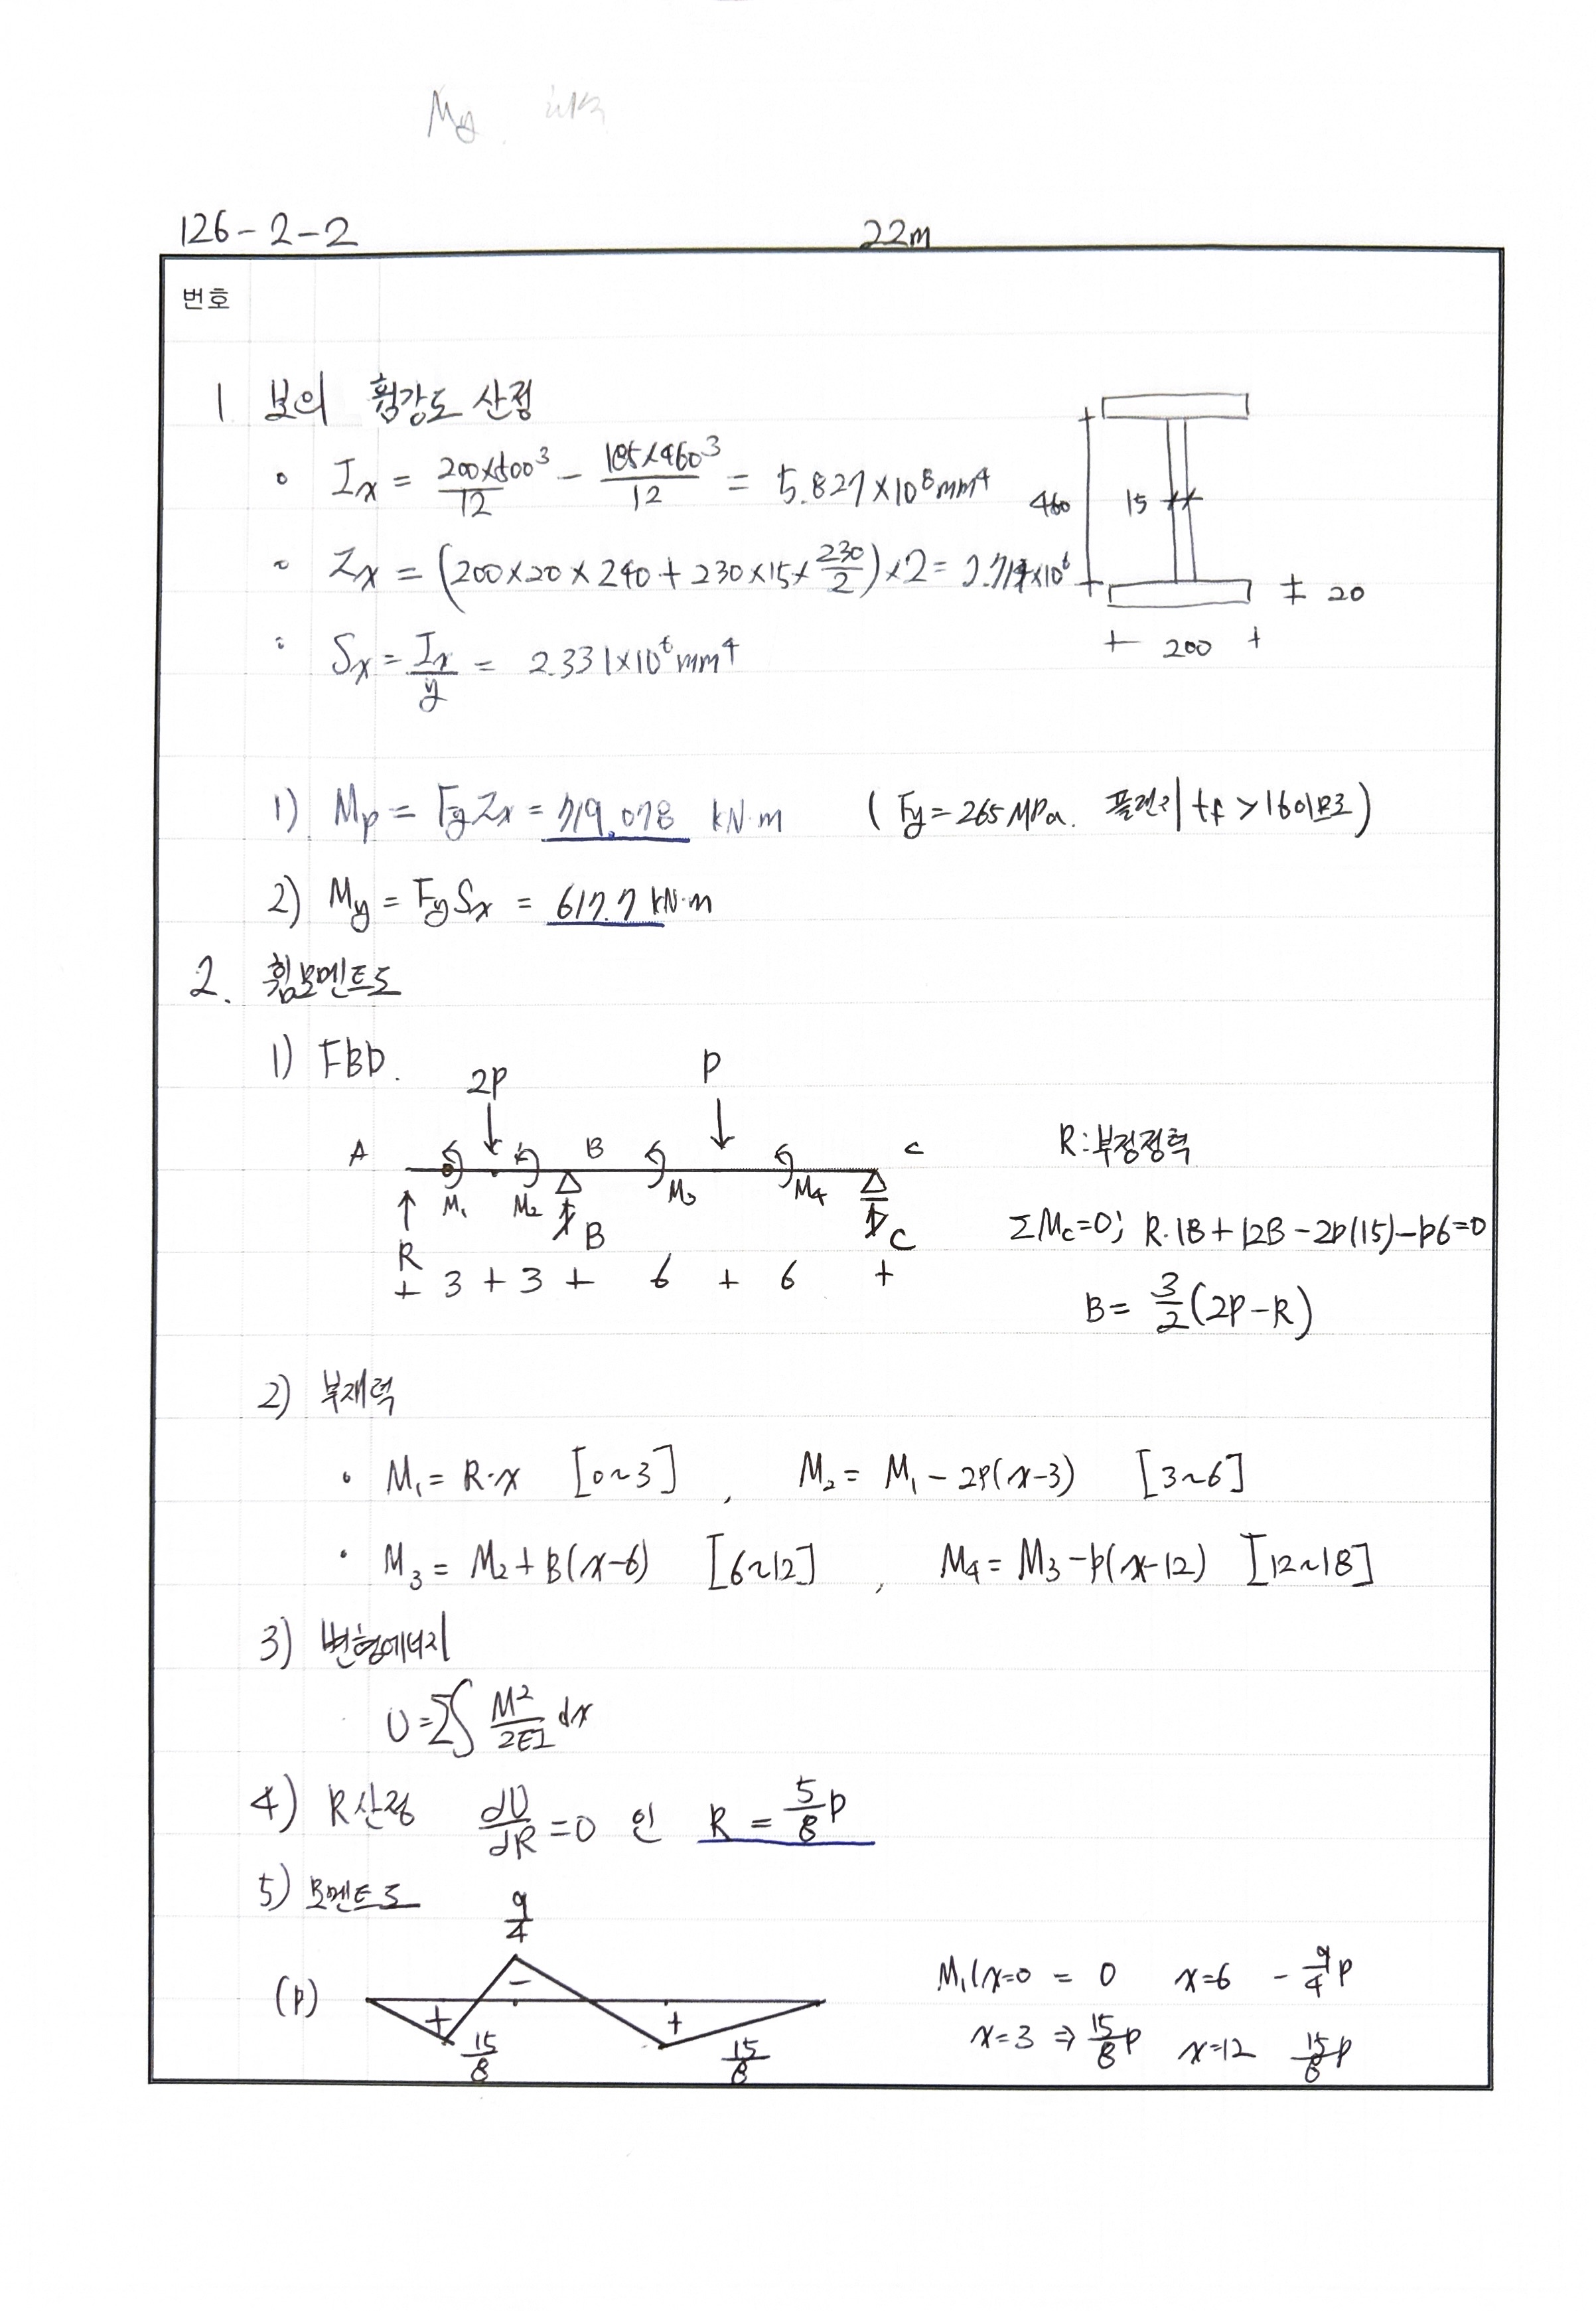 My
126-2-2 22m
번호
1 보의 휨강도 산정
∘ Ix = 200×500³/12 - 185×460³/12 = 5.827×10⁸mm⁴
∘ Zx = (200×20×240 + 230×15×230/2)×2 = 2.714×10⁶
∘ Sx = Ix/y = 2.331×10⁶mm⁴
460 15 20 200
1) Mp = FyZx = 719.078 kN·m (Fy=265MPa. 플랜지 tf > 16이므로)
2) My = FySx = 617.7 kN·m
2. 휨모멘트도
1) FBD.
2P P
A B C
M₁ M₂ M₃ M₄
R B C
+ 3 + 3 + 6 + 6 +
R:부정정력
ΣMc=0; R·18+12B-2P(15)-P6=0
B= 3/2(2P-R)
2) 부재력
• M₁= R·x [0~3] , M₂= M₁-2P(x-3) [3~6]
• M₃= M₂+B(x-6) [6~12] , M₄= M₃-P(x-12) [12~18]
3) 변형에너지
U=Σ∫ M²/2EI dx
4) R산정 dU/dR=0 인 R = 5/8P
5) 모멘트도
9/4
(P) + - +
15/8 15/8
M₁(x=0 = 0 x=6 - 9/4P
x=3 ⇒ 15/8P x=12 15/8P